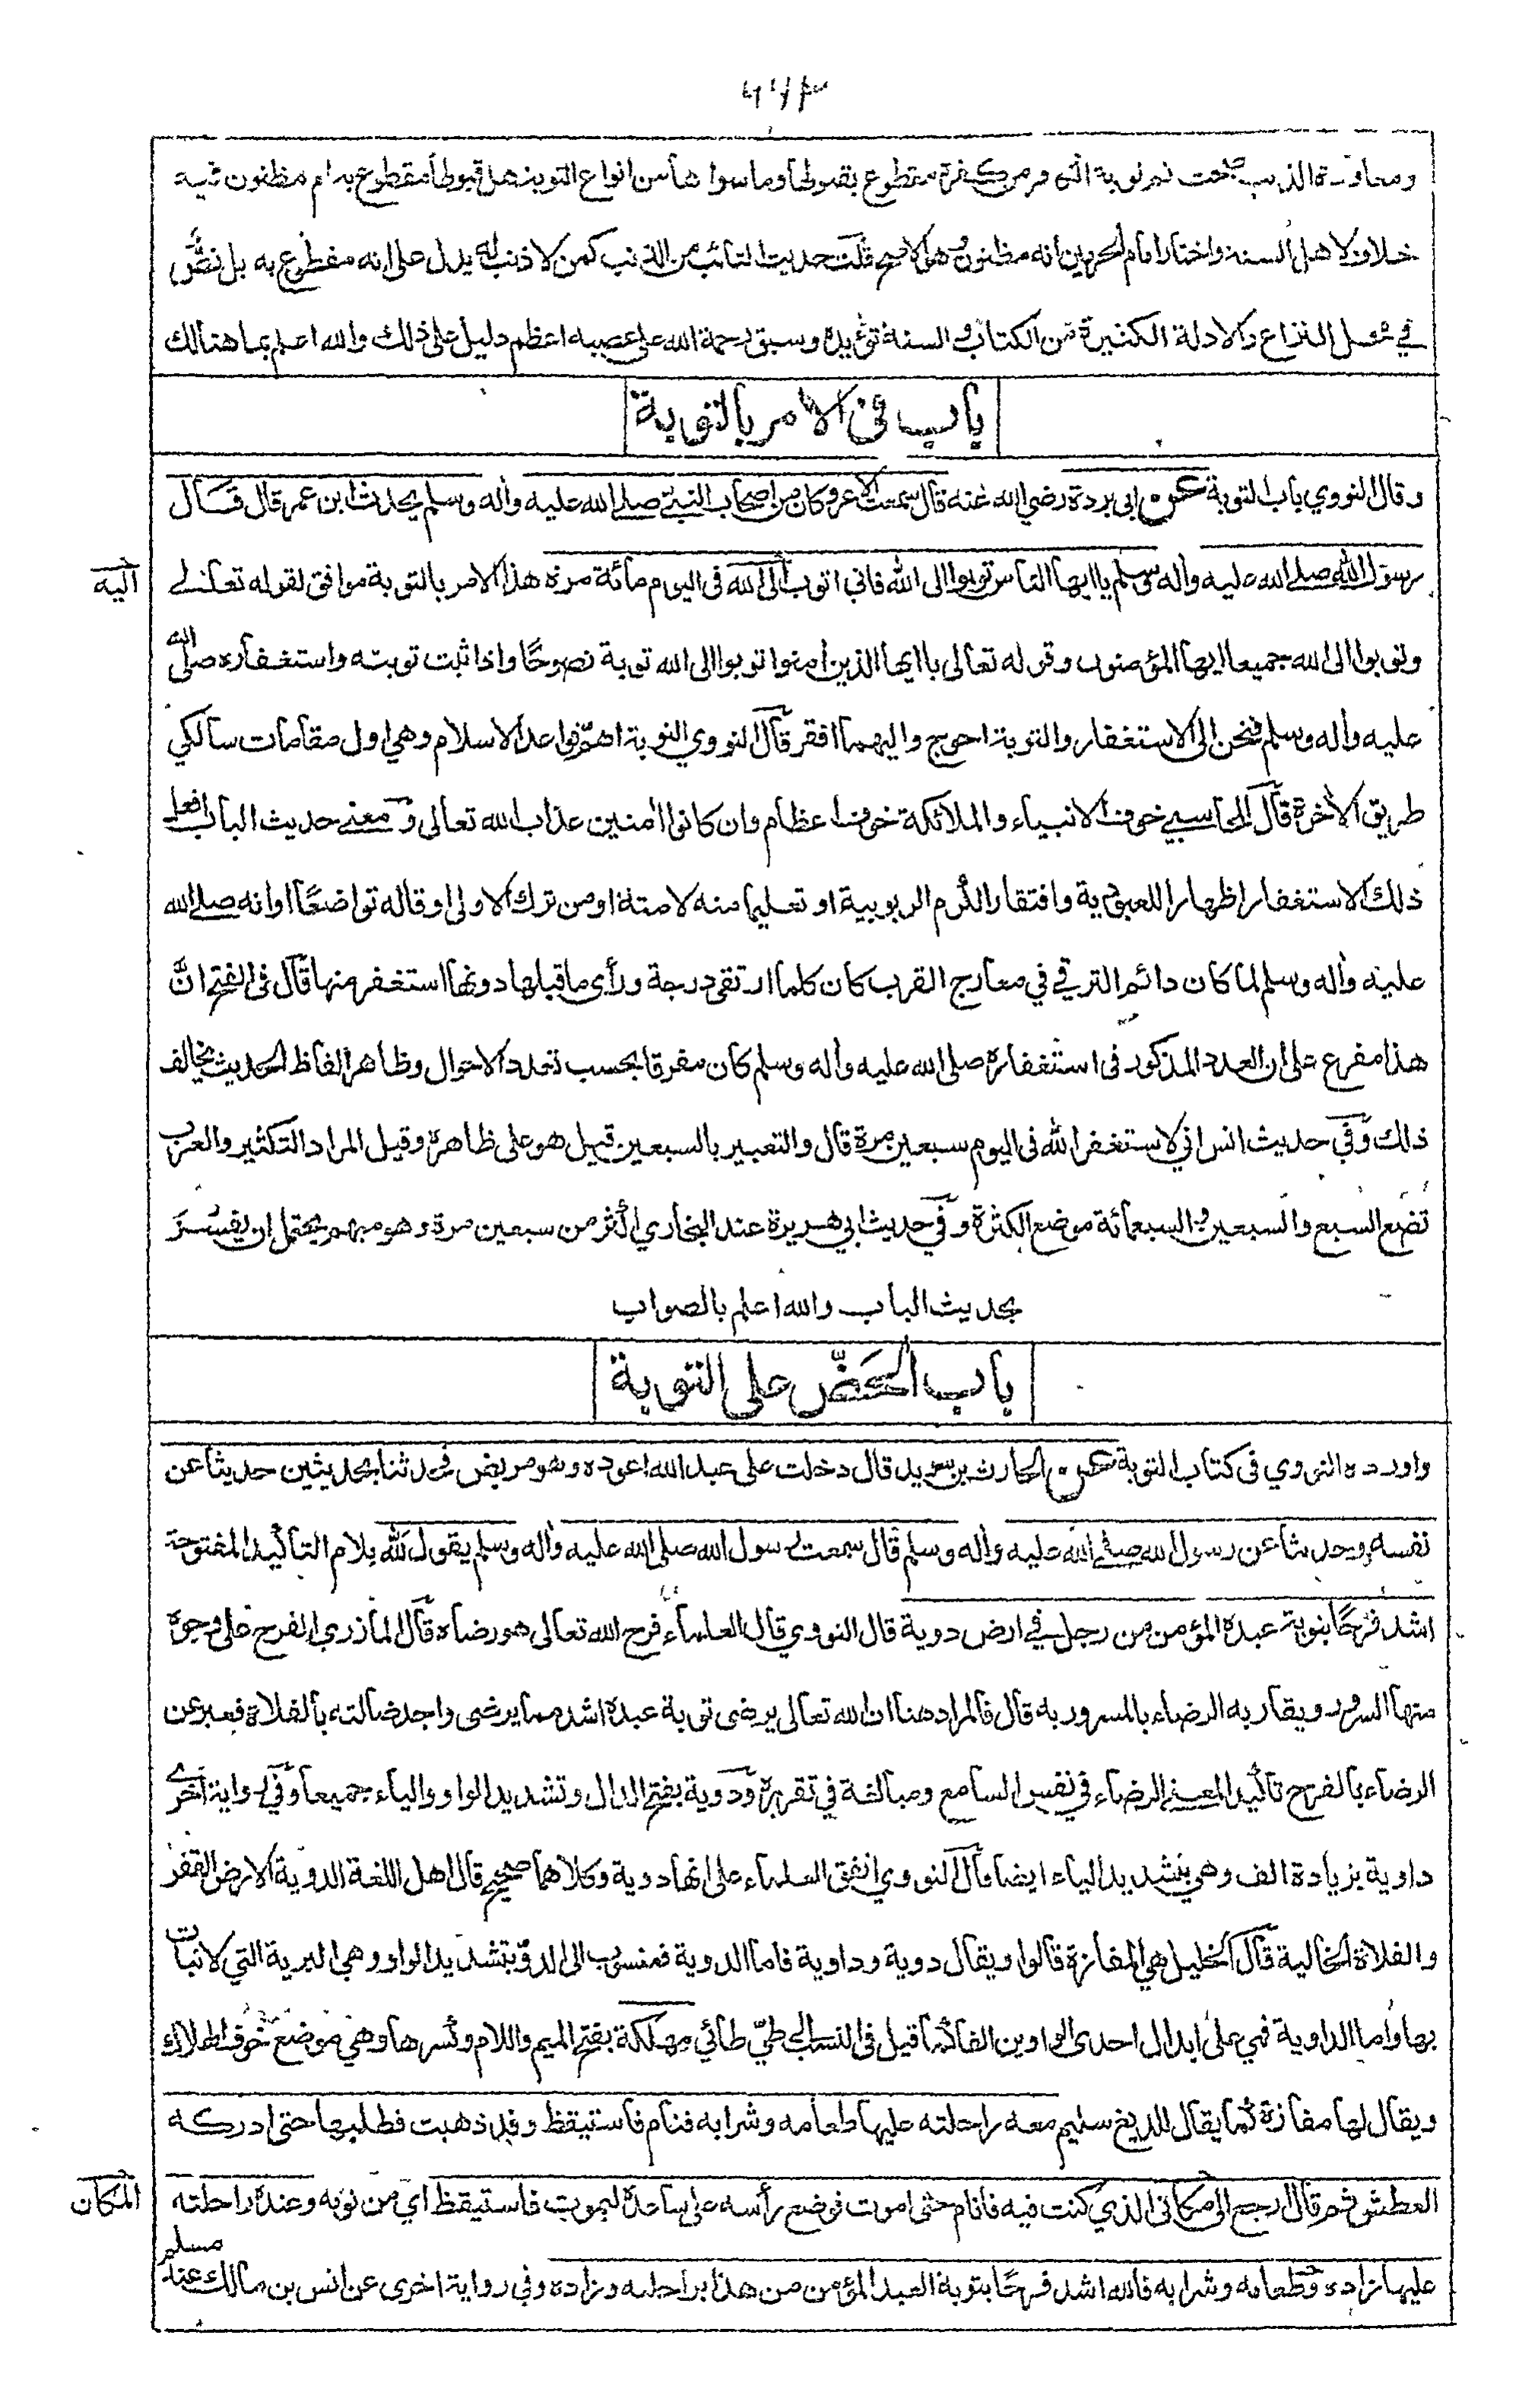 ٦٦٣
ومعاودة الذنب صحت ثم توبة الكافر من كفره مقطوع بقبولها وما سواها من انواع التوبة هل قبولها مقطوع به ام مظنون فيه
خلاف لاهل السنة واختار امام الحرمين انه مظنون وهو الاصح قلت حديث التائب من الذنب كمن لا ذنب له يدل على انه مقطوع به بل نصٌّ
في محل النزاع والادلة الكثيرة من الكتاب و السنة تؤيده وسبق رحمة الله على غضبه اعظم دليل على ذلك والله اعلم بما هنالك
باب في الامر بالتوبة
وقال النووي باب التوبة عن ابي بردة رضي الله عنه قال سمعت الاغر وكان من اصحاب النبي صلى الله عليه واله وسلم يحدث ابن عمر قال قال
رسول الله صلى الله عليه واله وسلم يا ايها الناس توبوا الى الله فاني اتوب الى الله في اليوم مائة مرة هذا الامر بالتوبة موافق لقوله تعالى
اليه
وتوبوا الى الله جميعا ايها المؤمنون وقوله تعالى يا ايها الذين امنوا توبوا الى الله توبة نصوحًا واذا ثبت توبته واستغفاره صلى الله
عليه واله وسلم فنحن الى الاستغفار والتوبة احوج واليهما افقر قال النووي التوبة اهم قواعد الاسلام وهي اول مقامات سالكي
طريق الاخرة قال المحاسبي خوف الانبياء والملائكة خوف اعظام وان كانوا امنين عذاب الله تعالى ومعنى حديث الباب افعل
ذلك الاستغفار اظهارا للعبودية وافتقارا لكرم الربوبية او تعليما منه لامته او من ترك الاولى او قاله تواضعًا او انه صلى الله
عليه واله وسلم لما كان دائم الترقي في معارج القرب كان كلما ارتقى درجة ورأى ما قبلها دونها استغفر منها قال في الفتح انَّ
هذا مفرع على ان العدد المذكور في استغفاره صلى الله عليه واله وسلم كان مفرقا بحسب تعدد الاحوال وظاهر الفاظ الحديث يخالف
ذلك وفي حديث انس اني لاستغفر الله في اليوم سبعين مرة قال والتعبير بالسبعين قيل هو على ظاهره وقيل المراد التكثير والعرب
تضع السبع والسبعين والسبعمائة موضع الكثرة وفي حديث ابي هريرة عند البخاري اكثر من سبعين مرة وهو مبهم يحتمل ان يفسَّر
بحديث الباب والله اعلم بالصواب
باب الحَضّ على التوبة
واورده النووي في كتاب التوبة عن الحارث بن سويد قال دخلت على عبد الله اعوده وهو مريض فحدثنا بحديثين حديثا عن
نفسه وحديثا عن رسول الله صلى الله عليه واله وسلم قال سمعت رسول الله صلى الله عليه واله وسلم يقول لَلّه بلام التاكيد المفتوحة
اشد فرحًا بتوبة عبده المؤمن من رجل في ارض دوية قال النووي قال العلماء فرح الله تعالى هو رضاه قال المازري الفرح على وجوه
منها السرور ويقاربه الرضاء بالمسرور به قال فالمراد هنا ان الله تعالى يرضى توبة عبده اشد مما يرضى واجد ضالته بالفلاة فعبر عن
الرضاء بالفرح تاكيدا لمعنى الرضاء في نفس السامع ومبالغة في تقريره ودوية بفتح الدال وتشديد الواو والياء جميعا وفي رواية اخرى
داوية بزيادة الف وهي بتشديد الياء ايضا قال النووي اتفق العلماء على انها دوية وكلاهما صحيح قال اهل اللغة الدوية الارض القفر
والفلاة الخالية قال الخليل هي المفازة قالوا ويقال دوية وداوية فاما الدوية فمنسوب الى الدوّ بتشديد الواو وهي البرية التي لا نبات
بها واما الداوية فهي على ابدال احدى الواوين الفا كما قيل في النسب الى طيّ طائي مهلكة بفتح الميم واللام وكسرها وهي موضع خوف الهلاك
ويقال لها مفازة كما يقال للديغ سليم معه راحلته عليها طعامه وشرابه فنام فاستيقظ وقد ذهبت فطلبها حتى ادركه
العطش ثم قال ارجع الى مكاني الذي كنت فيه فانام حتى اموت فوضع رأسه على ساعده ليموت فاستيقظ اي من نومه وعنده راحلته
المكان
عليها زاده وطعامه وشرابه فالله اشد فرحًا بتوبة العبد المؤمن من هذا براحلته وزاده وفي رواية اخرى عن انس بن مالك عند مسلم